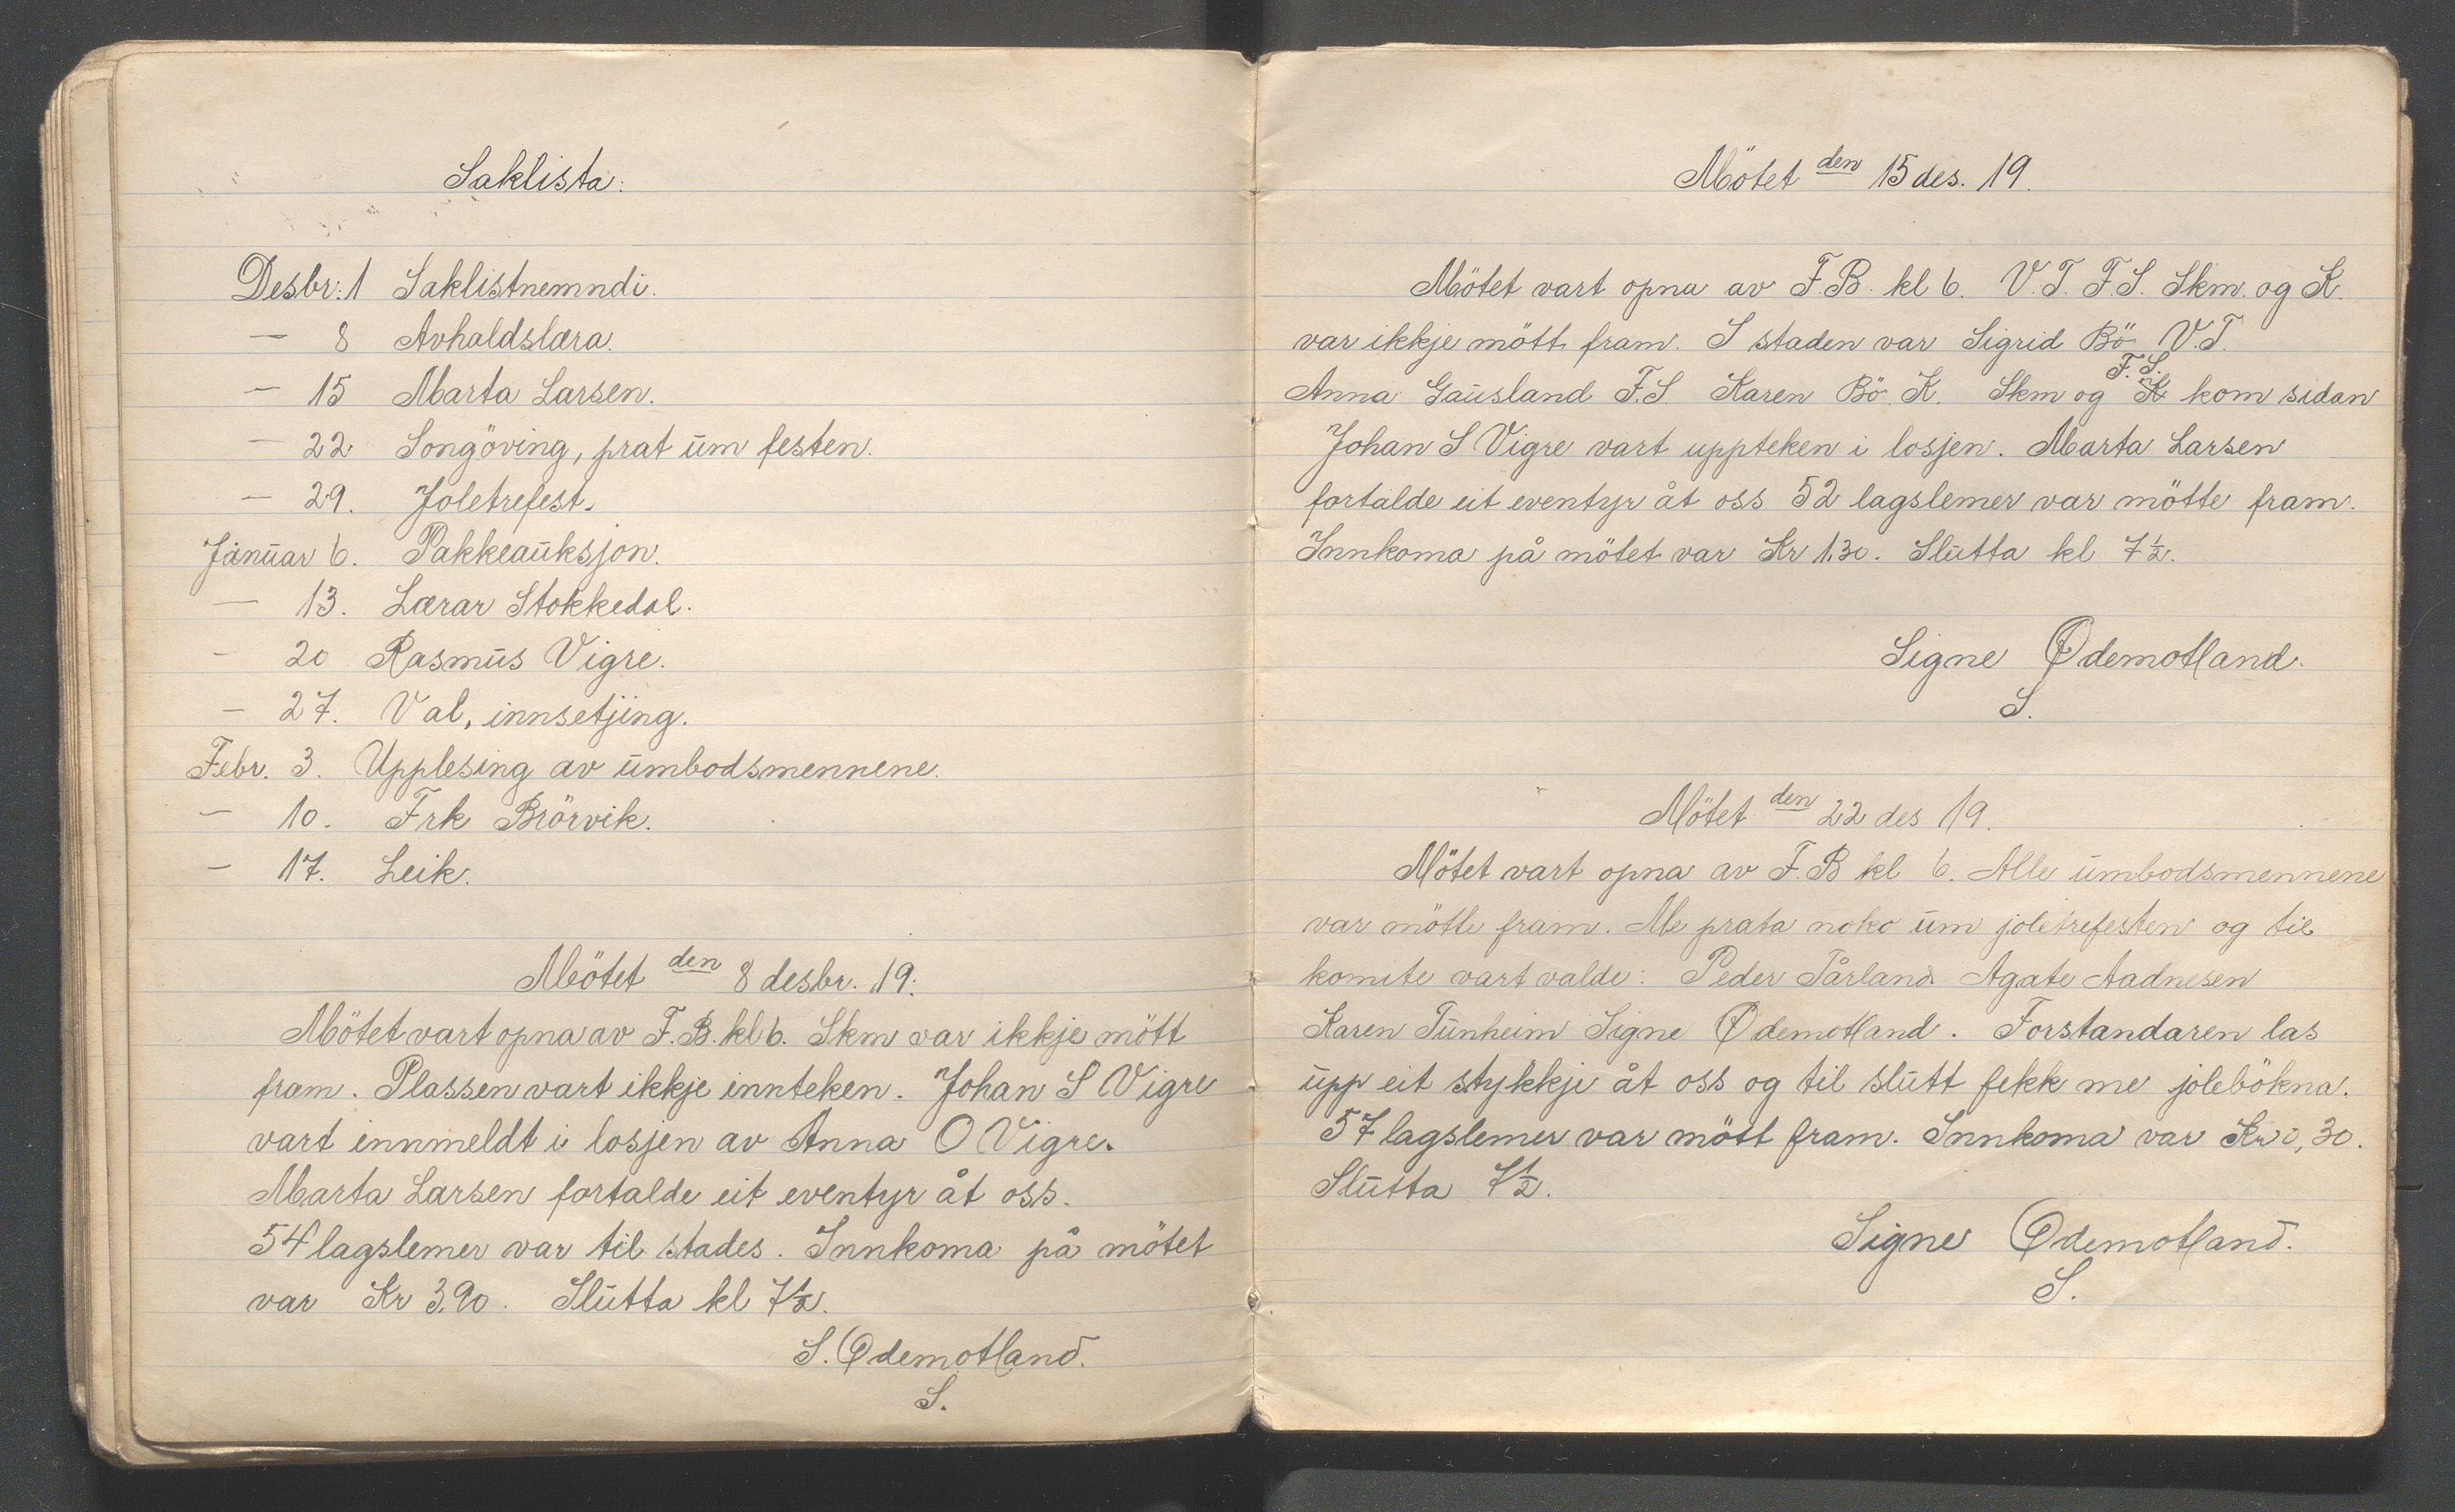 Saklista:
Desbr: 1 Saklistnemndi.
— 8 Avhaldslæra.
— 15 Marta Larsen.
— 22 Songöving, prat um festen.
— 29. Joletrefest.
Januar 6. Pakkeauksjon.
— 13. Lærar Stokkedal.
— 20 Rasmus Vigre.
— 27. Val, innsetjing.
Febr. 3. Upplesing av umbodsmennene.
— 10. Frk Brörvik.
— 17. Leik.
Mötet den 8 desbr. 19:
Mötet vart opna av F.B. kl 6. Skm var ikkje mött
fram. Plassen vart ikkje innteken. Johan S Vigre
vart innmeldt i losjen av Anna O Vigre.
Marta Larsen fortalde eit eventyr åt oss.
54 lagslemer var til stades. Innkoma på mötet
var Kr 3,90. Slutta kl 7½.
S. Ødemotland.
S.
Mötet den 15 des. 19.
Mötet vart opna av F.B. kl 6. V.T. F.S. Skm. og K.
var ikkje mött fram. I staden var Sigrid Bö V.T.
Anna Gausland F.S. Karen Bö K. Skm og F.S. kom sidan
Johan S Vigre vart uppteken i losjen. Marta Larsen
fortalde eit eventyr åt oss 52 lagslemer var mötte fram.
Innkoma på mötet var Kr 1,30. Slutta kl 7½.
Signe Ødemotland.
S.
Mötet den 22 des 19.
Mötet vart opna av F.B kl 6. Alle umbodsmennene
var mötte fram. Me prata noko um joletrefesten og til
komite vart valde: Peder Tårland Agate Aadnesen
Karen Tunheim Signe Ødemotland. Forstandaren las
upp eit stykkje åt oss og til slutt fekk me jolebökna.
57 lagslemer var mött fram. Innkoma var Kr 0,30.
Slutta 7½.
Signe Ødemotland.
S.